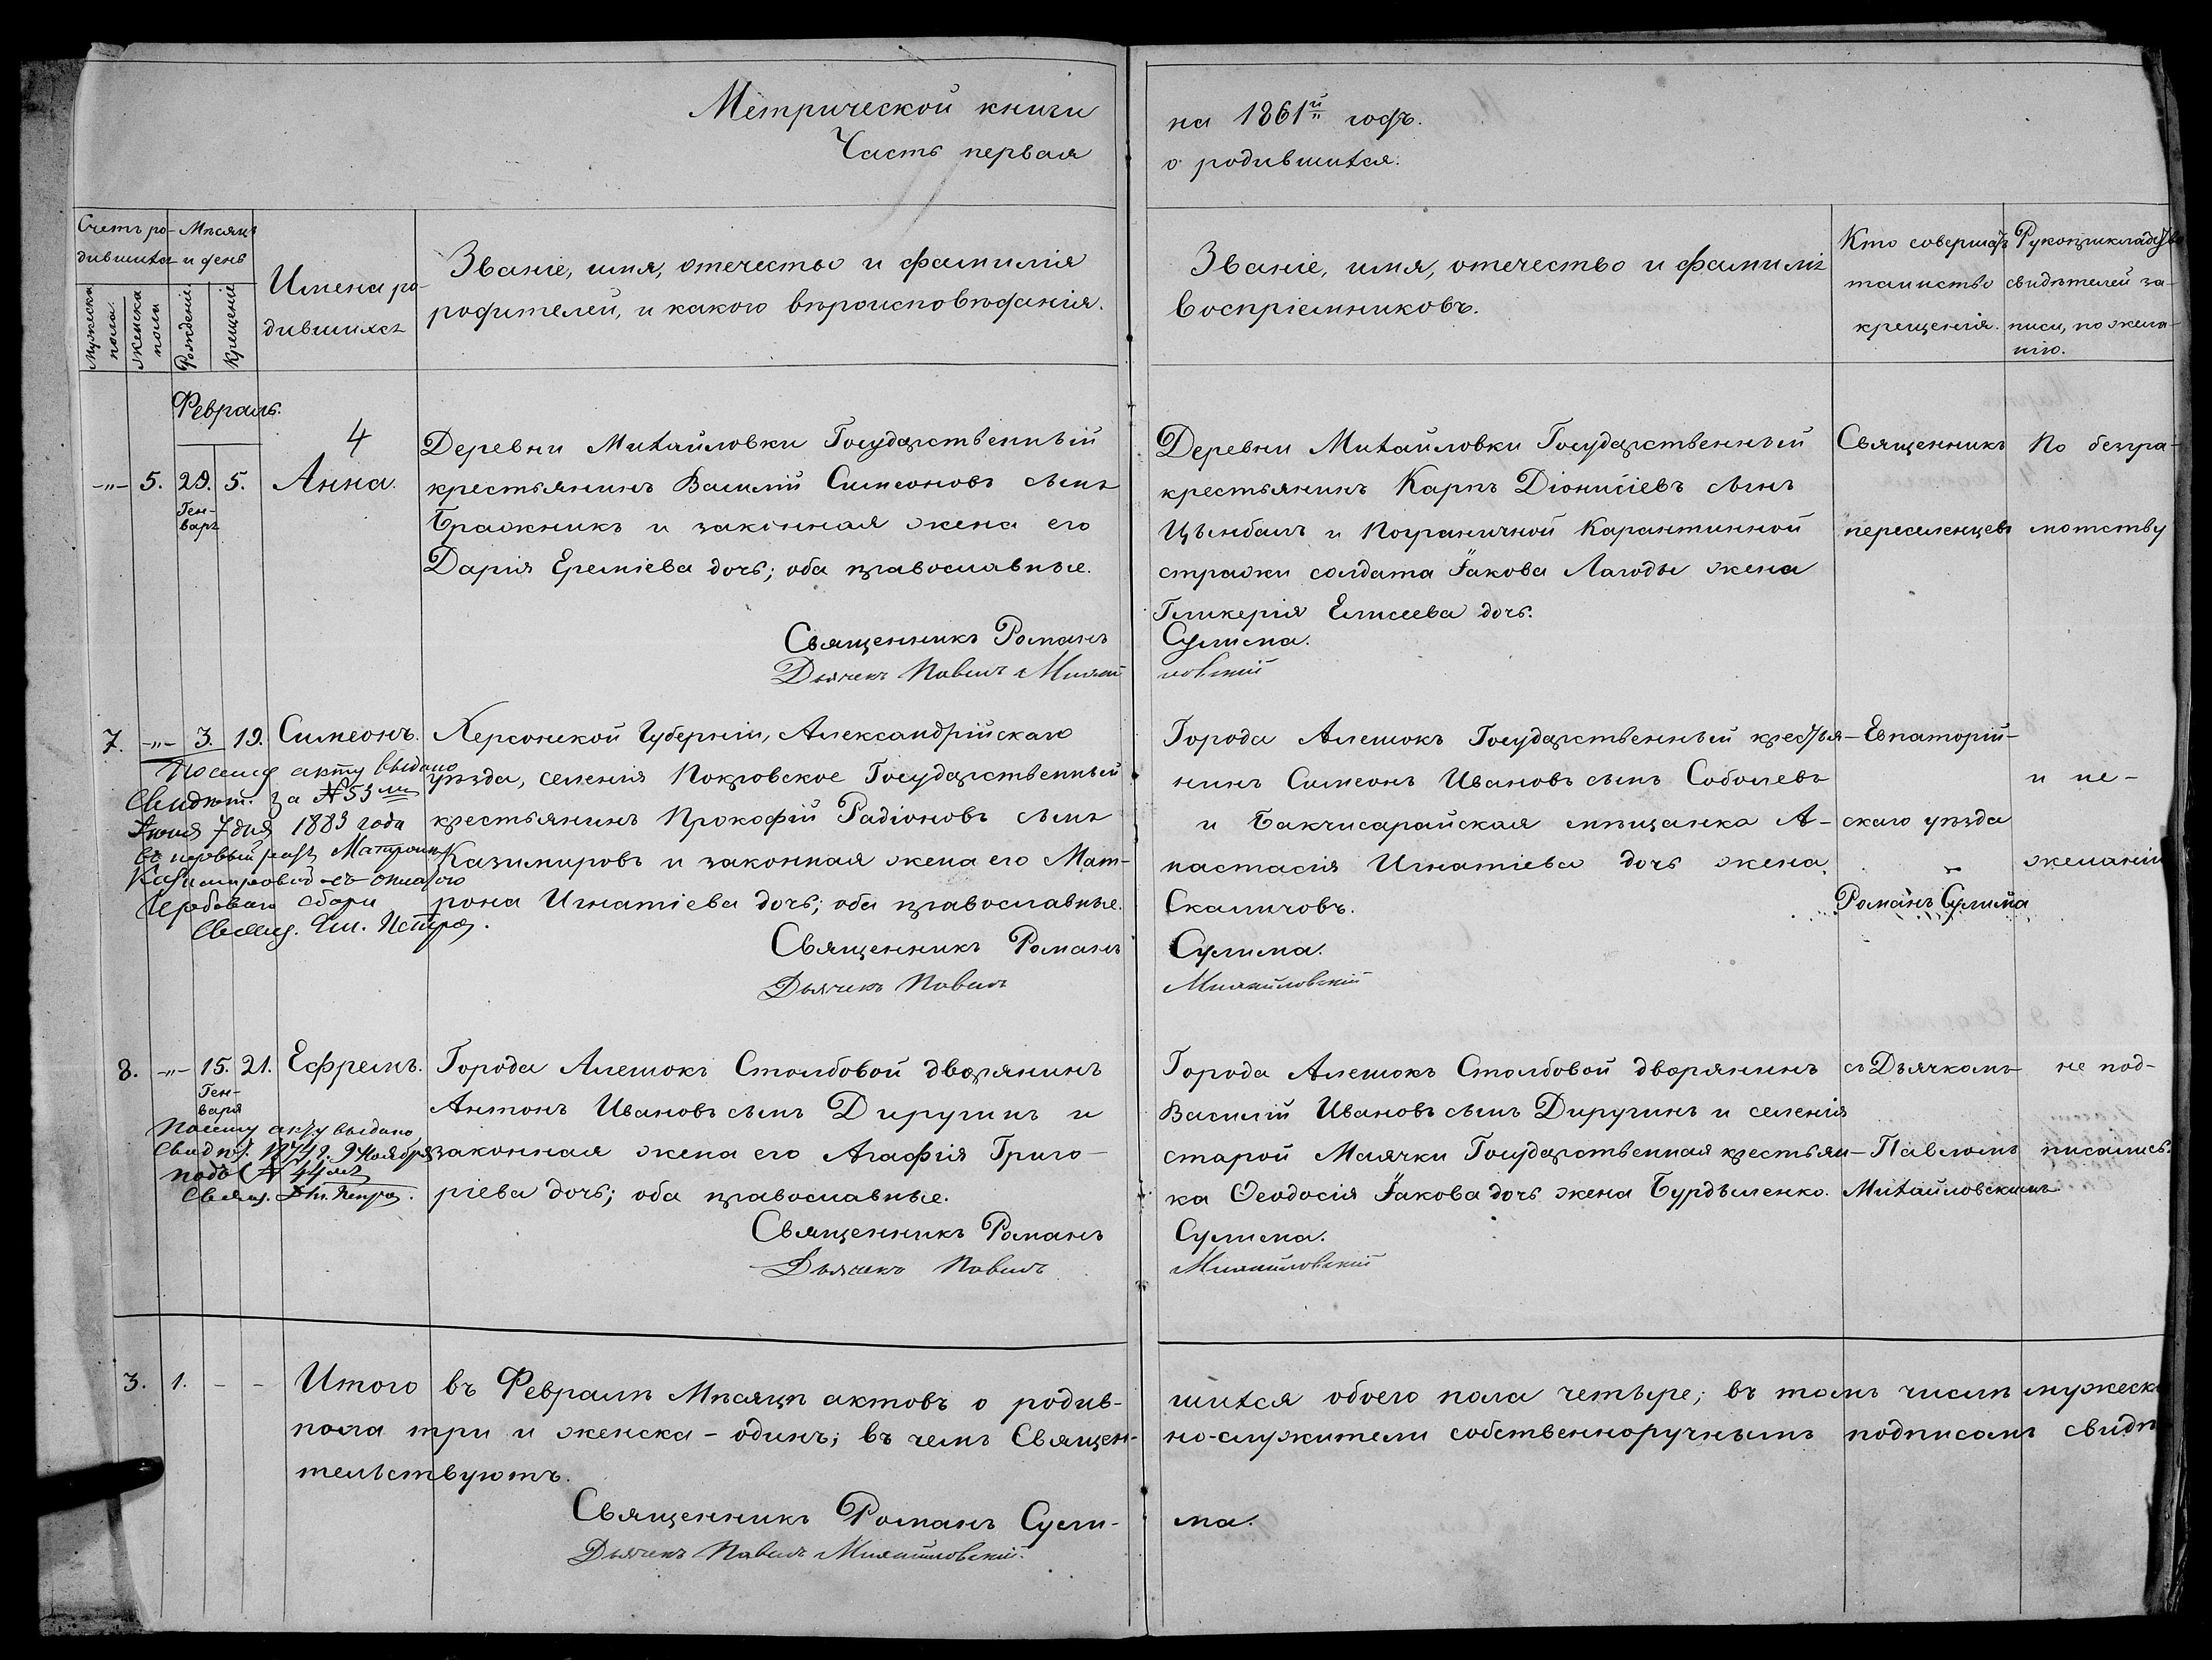 Метрической книги
на 1861й годъ.
Часть первая
о родившихся.
Счетъ ро-
дившихся
Мѣсяцъ
и день
Имена ро-
дившихся
Званіе, имя, отечество и фамилія
родителей, и какого вѣроисповѣданія.
Званіе, имя, отечество и фамилія
воспріемниковъ.
Кто совершалъ
таинство
крещенія.
Рукоприкладство
свидѣтелей за-
писи, по жела-
нію.
Мужеска
пола.
Женска
пола
Рожденіе.
Крещеніе
Февраль.
4
-„- 5. 29. 5. Анна.
Ген-
варь
Деревни Михайловки Государственный
крестьянинъ Василій Симеоновъ сынъ
Бражникъ и законная жена его
Дарія Ереміева дочь; оба православные.
Священникъ Романъ
Дьячекъ Павелъ Михай
Деревни Михайловки Государственный
крестьянинъ Карпъ Діонисіевъ сынъ
Цымбалъ и Пограничной Карантинной
стражи солдата Іакова Лагоды жена
Гликерія Елисеева дочь.
Сулима.
ловскій
Священникъ
переселенцевъ
По безгра-
мотству
7. -„- 3. 19. Симеонъ.
По сему акту выдано
Свидѣт. за №53мъ
Іюня 7 дня 1883 года
въ первый разъ Матроны
Казимировой съ оплатою
Гербоваго сбора
Свящ.
Херсонской Губерніи, Александрійскаго
уѣзда, селенія Покровское Государственный
крестьянинъ Прокофій Радіоновъ сынъ
Казимировъ и законная жена его Мат-
рона Игнатіева дочь; оба православные.
Священникъ Романъ
Дьячекъ Павелъ
Города Алешокъ Государственный крестья-
нинъ Симеонъ Ивановъ сынъ Соболевъ
и Бакчисарайская мѣщанка А-
настасія Игнатіева дочь жена
Скаличовъ.
Сулима.
Михайловскій
Евпаторій-
скаго уѣзда
Романъ Сулима
и не-
желанію
8. -„- 15. 21. Ефремъ.
Ген-
варя
По сему акту выдано
свидѣт. 9 Ноября
подъ № 44мъ
Свящ.
Города Алешокъ Столбовой дворянинъ
Антонъ Ивановъ сынъ Диругинъ и
законная жена его Агафія Григо-
ріева дочь; оба православные.
Священникъ Романъ
Дьячекъ Павелъ
Города Алешокъ Столбовой дворянинъ
Василій Ивановъ сынъ Диругинъ и селенія
старой Маячки Государственная крестьян-
ка Ѳеодосія Іакова дочь жена Бурдыленко.
Сулима.
Михайловскій
съ Дьячкомъ
Павломъ
Михайловскимъ
не под-
писались.
3. 1. - - Итого въ Февралѣ Мѣсяцѣ актовъ о родив-
шихся обоего пола четыре; въ томъ числѣ мужеска
пола три и женска - одинъ; въ чемъ Священ-
но-служители собственноручнымъ подписомъ свидѣ
тельствуютъ.
Священникъ Романъ Сули-
ма.
Дьячекъ Павелъ Михайловскій.